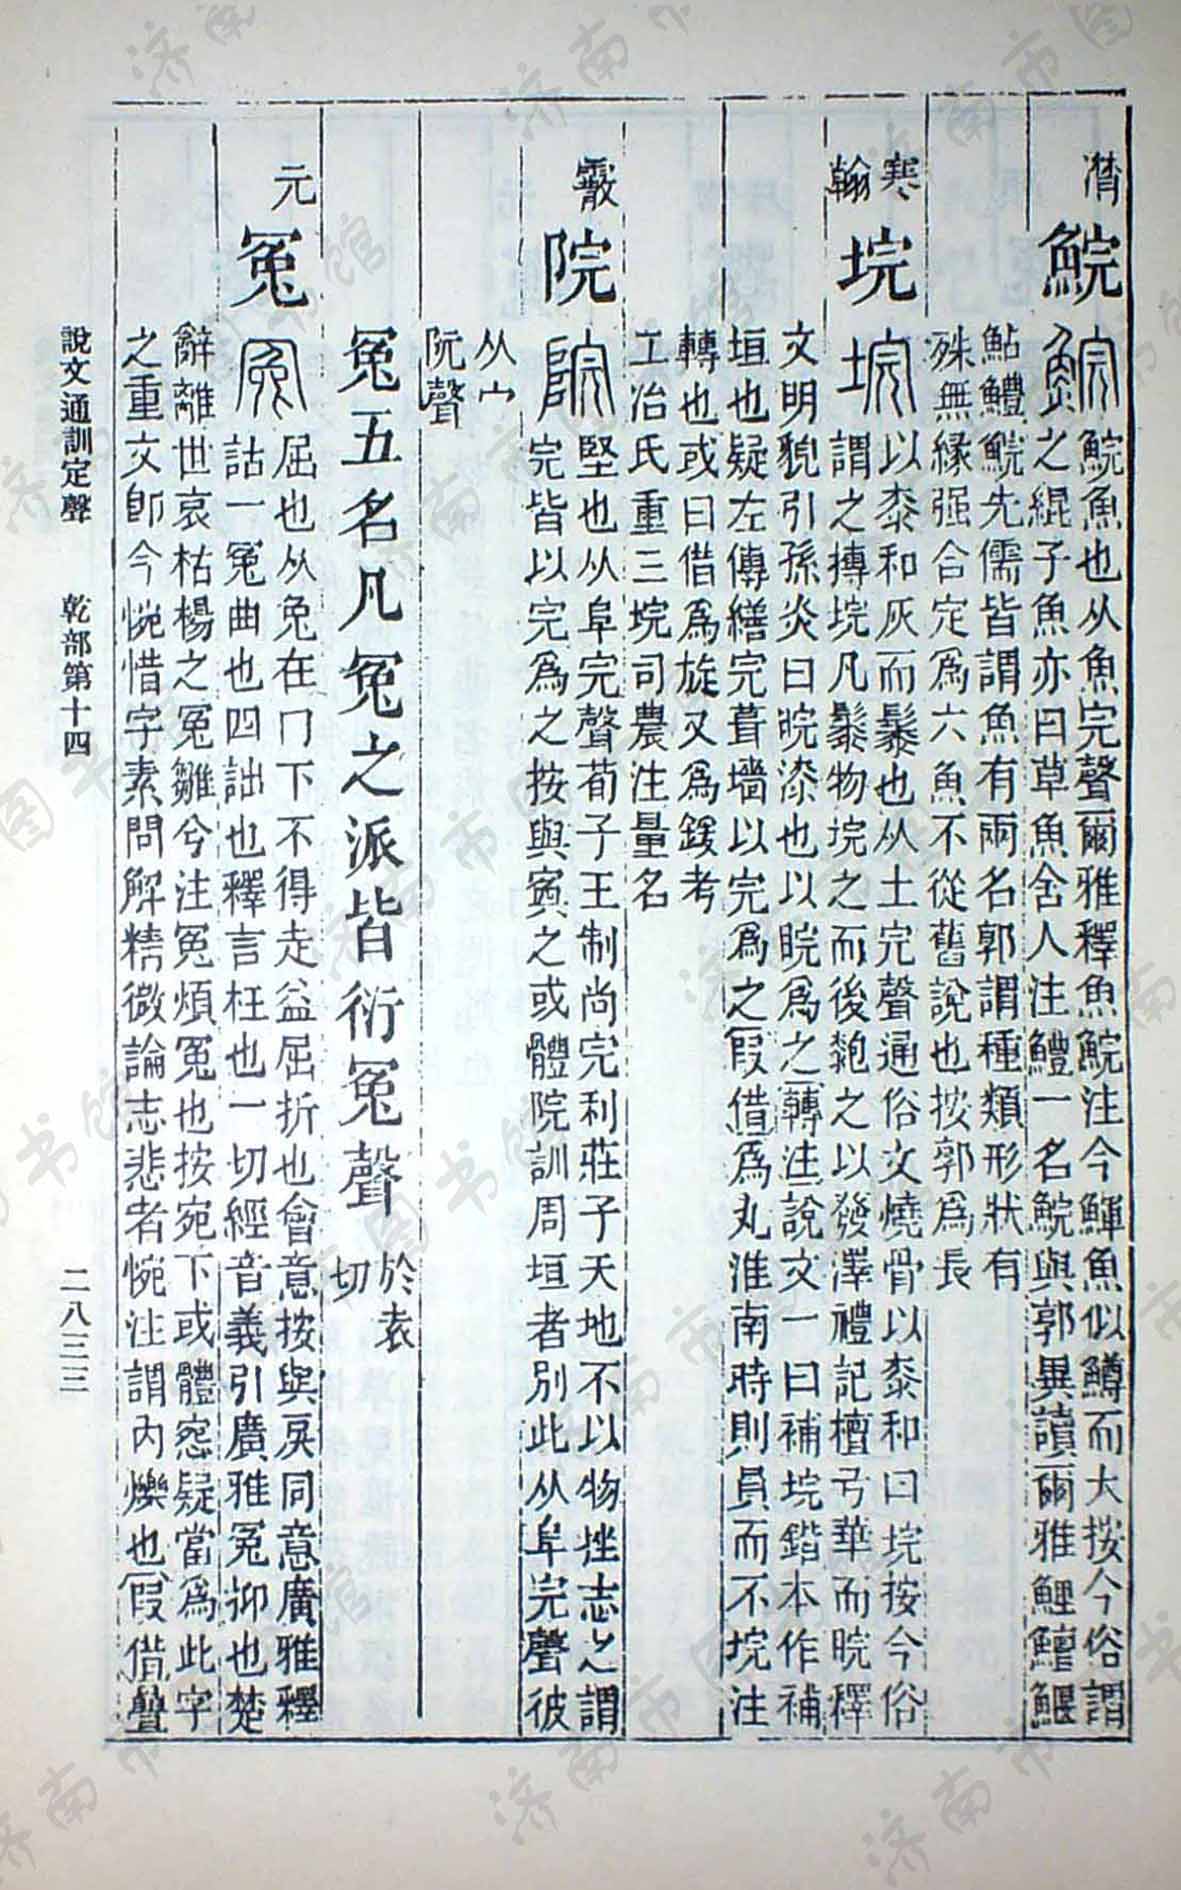 潸
鯇
鯇魚也从魚完聲爾雅釋魚鯇注今鯶魚似鱒而大按今俗謂
之緄子魚亦曰草魚舍人注鱧一名鯇與郭異讀爾雅鯉鱣鰋
鮎鱧鯇先儒皆謂魚有兩名郭謂種類形狀有
殊無緣强合定爲六魚不從舊說也按郭爲長
寒
翰
垸
以桼和灰而髹也从土完聲通俗文燒骨以桼和曰垸按今俗
謂之摶垸凡髹物垸之而後䰍之以發澤禮記檀弓華而睆釋
文明貌引孫炎曰睆漆也以睆爲之轉注說文一曰補垸鍇本作補
垣也疑左傳繕完葺墻以完爲之叚借爲丸淮南時則員而不垸注
轉也或曰借爲旋又爲鍰考
工冶氏重三垸司農注量名
霰
院
堅也从阜完聲荀子王制尚完利莊子天地不以物挫志之謂
完皆以完爲之按與寏之或體院訓周垣者別此从阜完聲彼
从宀
阮聲
冤五名凡冤之派皆衍冤聲
於袁
切
元
冤
屈也从兔在冂下不得走益屈折也會意按與戾同意廣雅釋
詁一冤曲也四詘也釋言枉也一切經音義引廣雅冤抑也楚
辭離世哀枯楊之冤雛兮注冤煩冤也按宛下或體惌疑當爲此字
之重文卽今惋惜字素問解精微論志悲者惋注謂內爍也叚借疊
說文通訓定聲　乾部第十四　二八三三